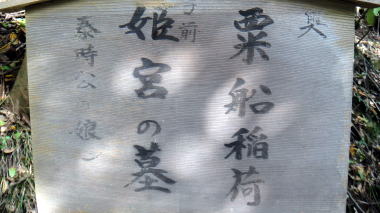 奥
粟船稲荷
手前
姫宮の墓
泰時公の娘